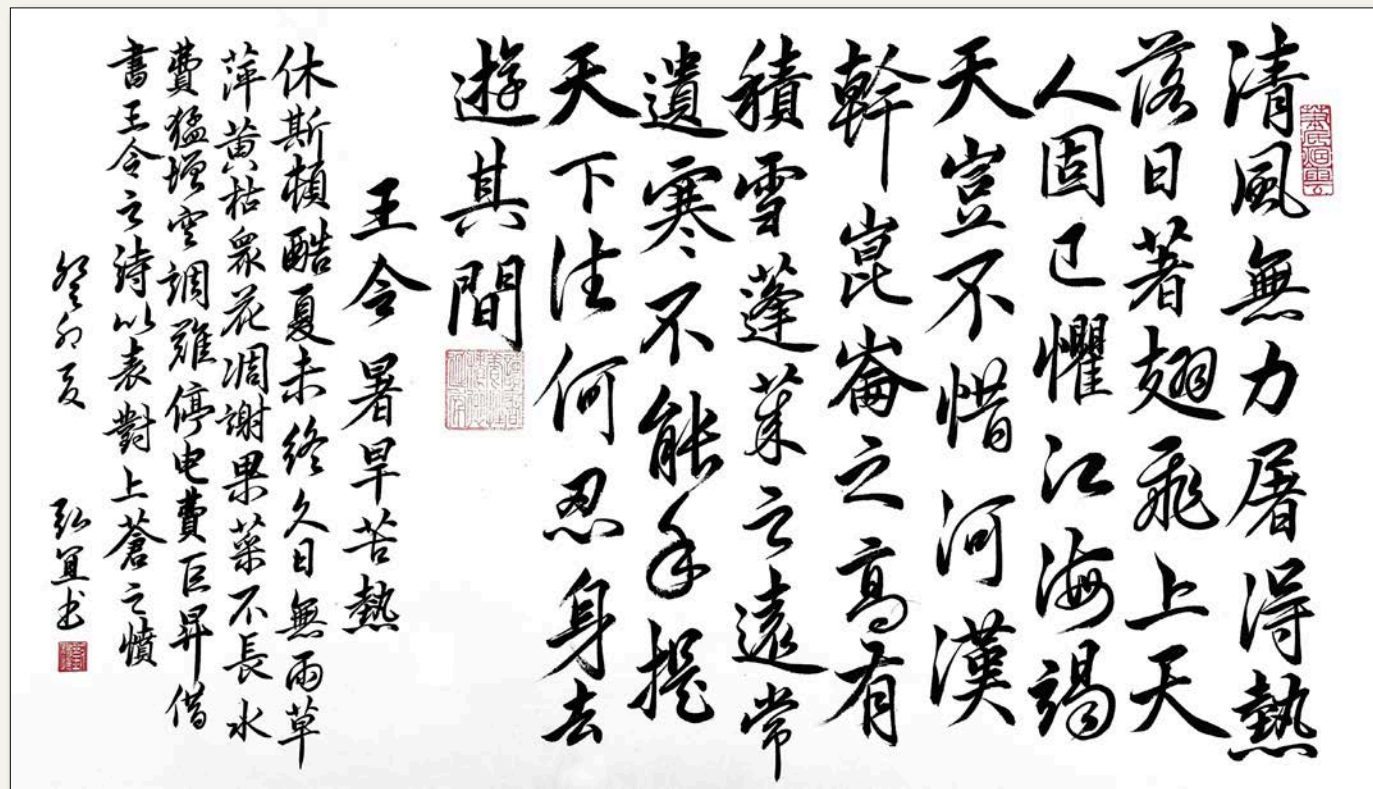 清風無力屠得熱
落日著翅飛上天
人固已懼江海竭
天豈不惜河漢
幹崑崙之高有
積雪蓬萊之遠常
遺寒不能手提
天下往何忍身去
遊其間
王令 暑旱苦熱
休斯頓酷夏未終久日無雨草
萍黃枯眾花凋謝果菜不長水
費猛增空調難停电費巨昇借
書王令之詩以表對上蒼之憤
癸卯夏 弘宜书